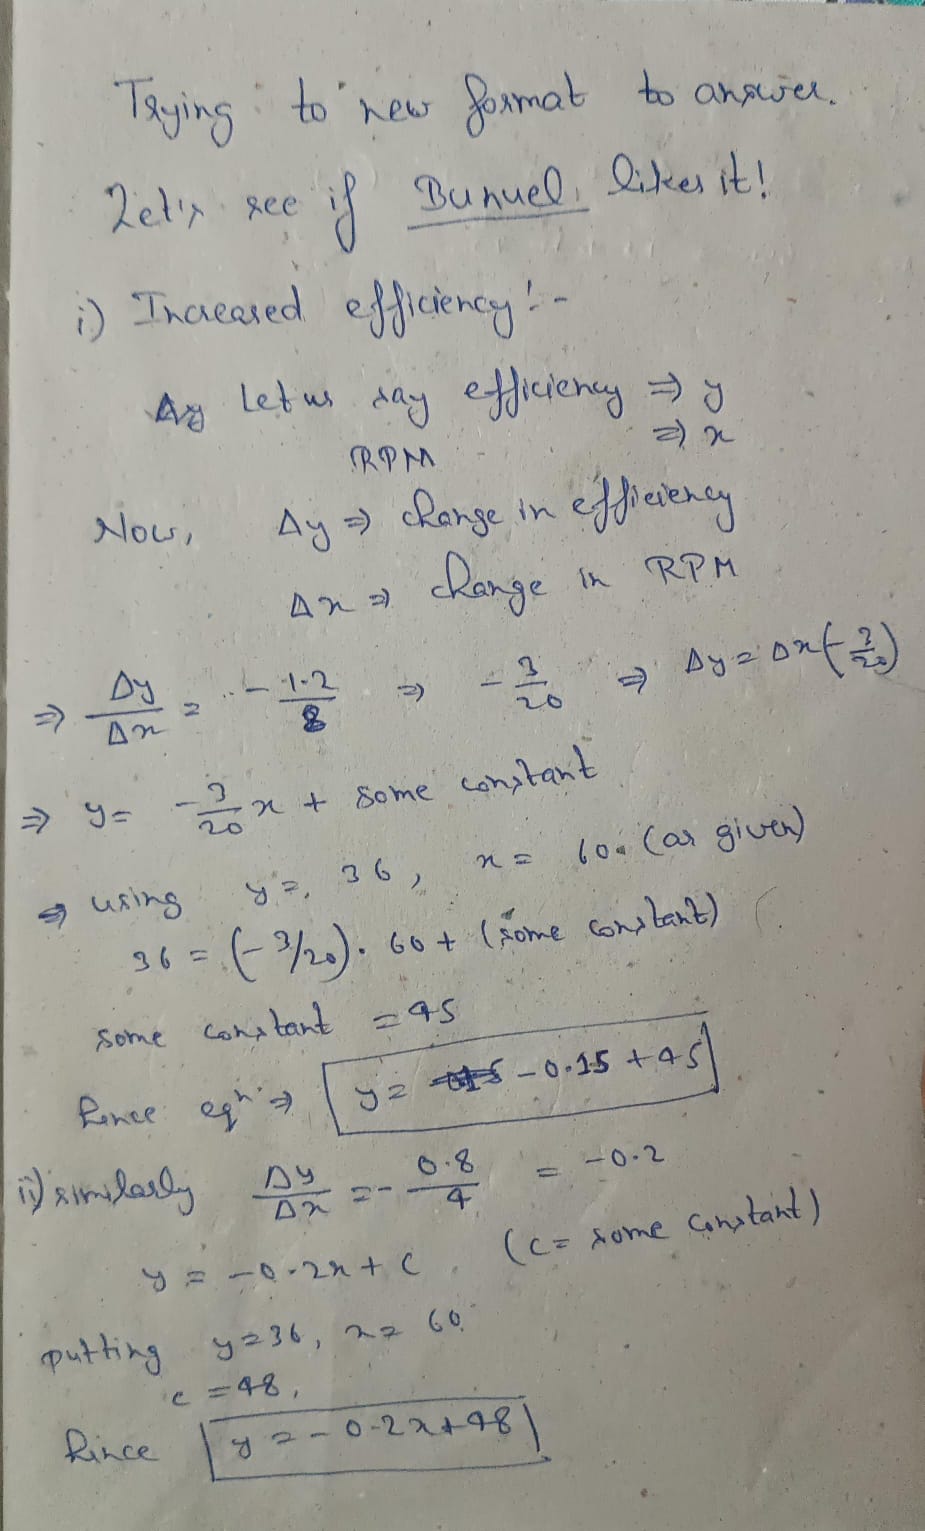 Trying to new format to answer.
Let's see if Bunuel likes it!
i) Increased efficiency :-
Let us say efficiency ⇒ y
RPM ⇒ x
Now, Δy ⇒ change in efficiency
Δx ⇒ change in RPM
⇒ Δy/Δx = -1.2/8 ⇒ -3/20 ⇒ Δy = Δx(-3/20)
⇒ y = -3/20 x + some constant
⇒ using y = 36, x = 60 (as given)
36 = (-3/20). 60 + (some constant)
some constant = 45
Hence eqn ⇒ y = -0.15 + 45
ii) similarly Δy/Δx = -0.8/4 = -0.2
y = -0.2x + c (c = some constant)
putting y = 36, x = 60
c = 48,
Hince y = -0.2x + 48